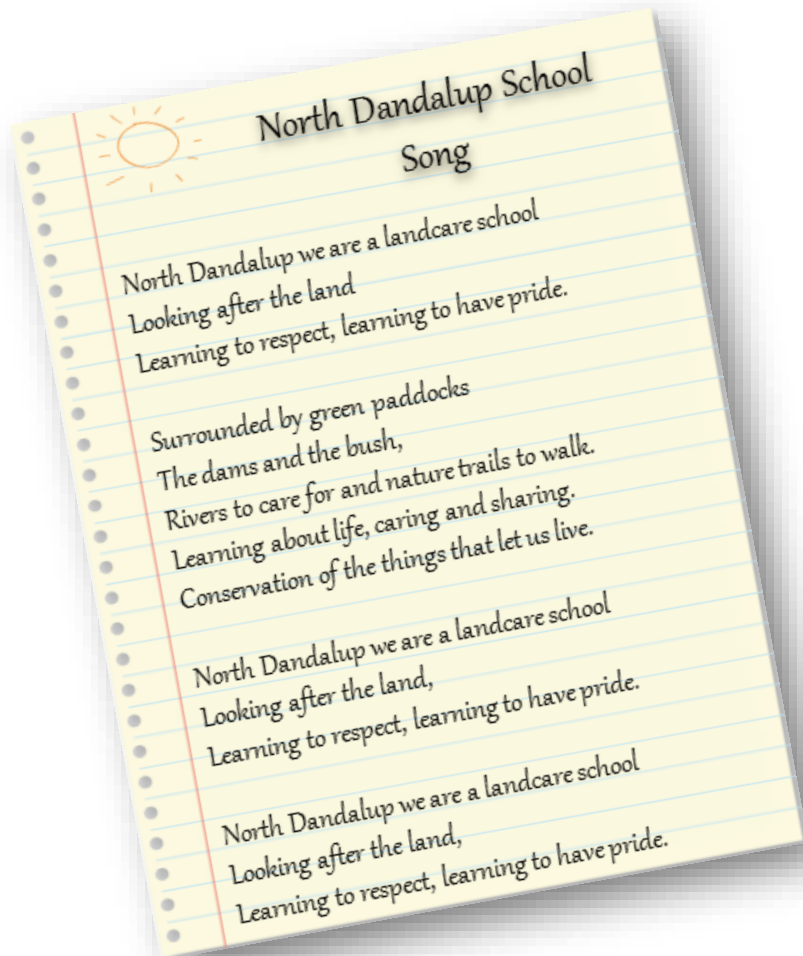 North Dandalup School
Song
North Dandalup we are a landcare school
Looking after the land
Learning to respect, learning to have pride.
Surrounded by green paddocks
The dams and the bush,
Rivers to care for and nature trails to walk.
Learning about life, caring and sharing.
Conservation of the things that let us live.
North Dandalup we are a landcare school
Looking after the land,
Learning to respect, learning to have pride.
North Dandalup we are a landcare school
Looking after the land,
Learning to respect, learning to have pride.